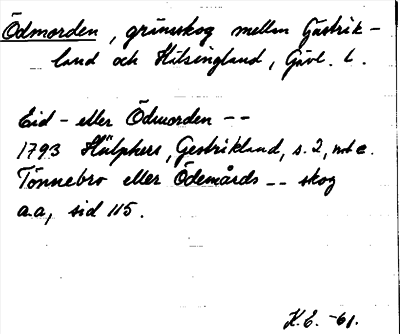 Ödmorden, gränsskog mellan Gästrik-
land och Hälsingland, Gävl. l.
Eid- eller Ödmorden --
1793 Hülphers, Gestrikland, s. 2, not e.
Tönnebro eller Ödemårds -- skog
a.a, sid 115.
K.E. -61.